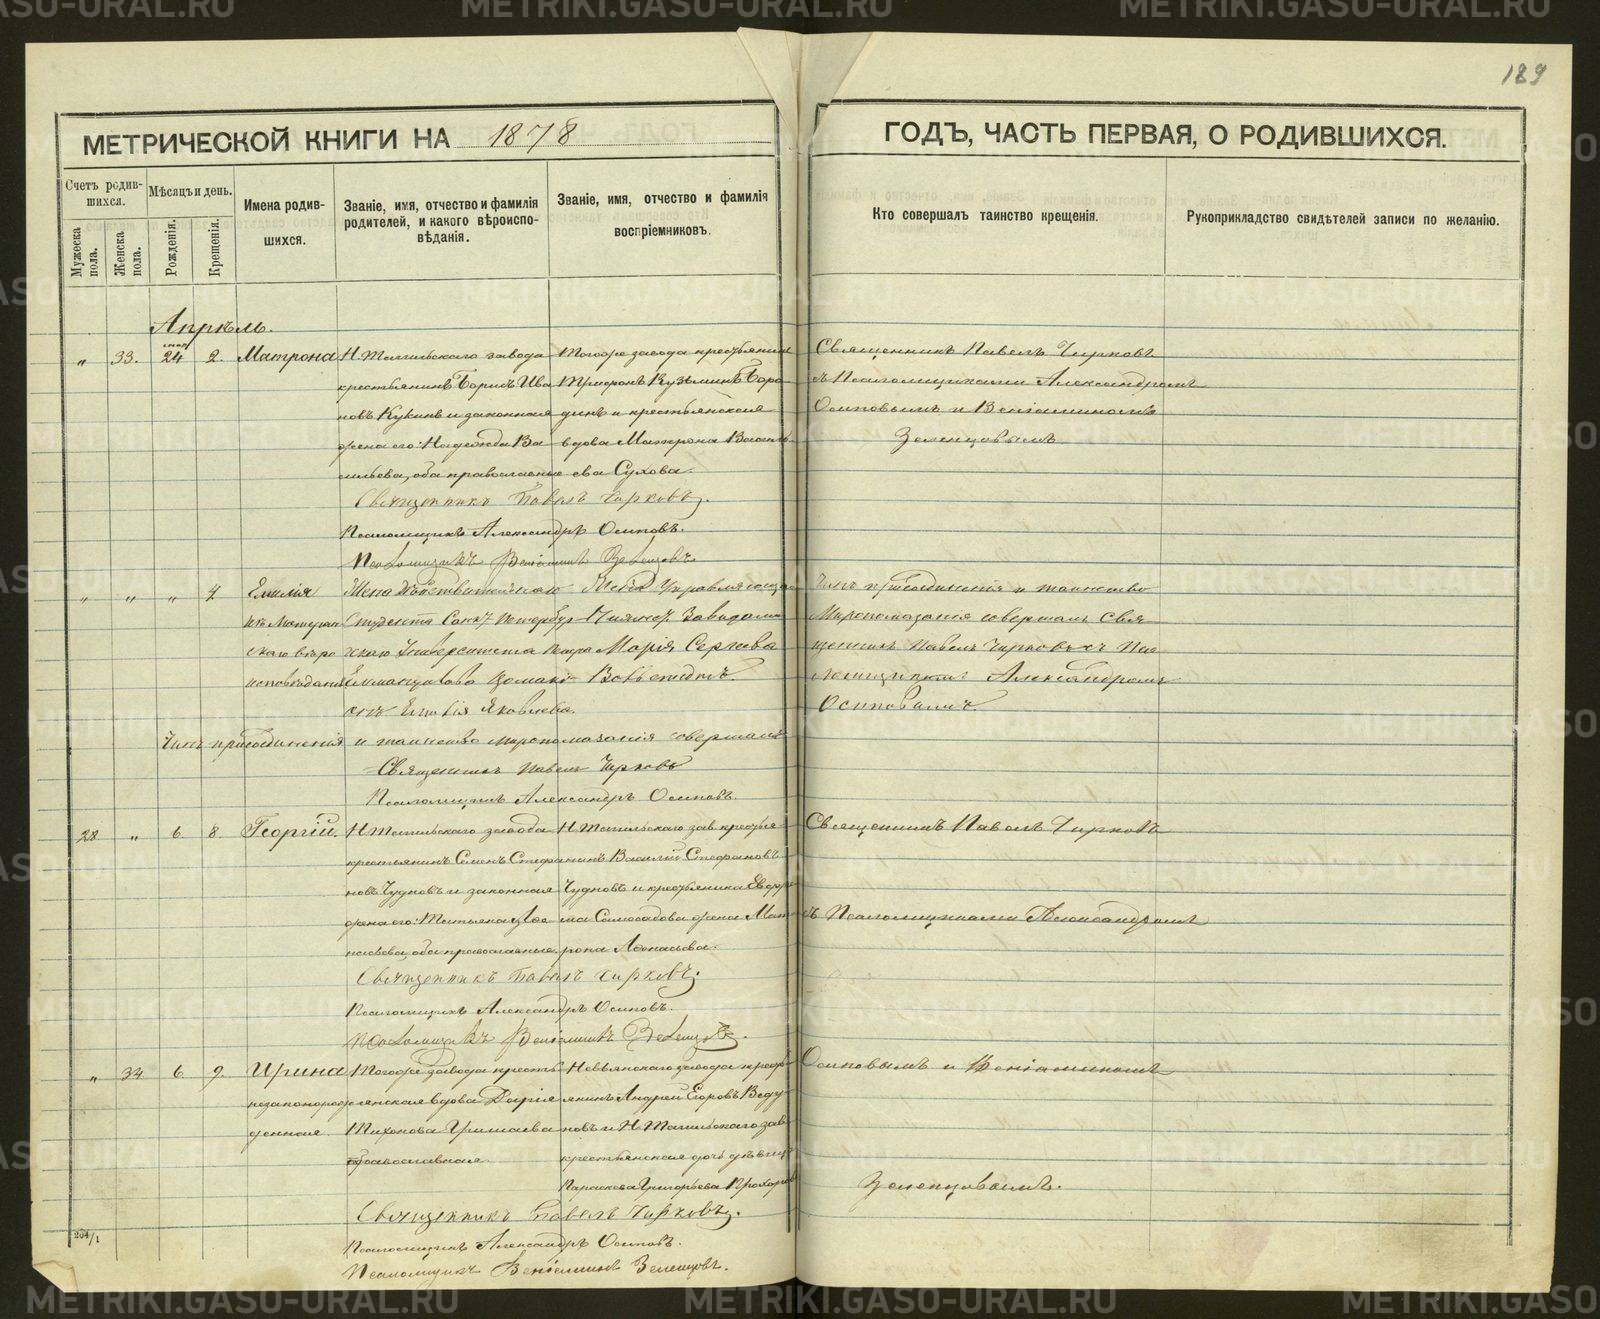 189
МЕТРИЧЕСКОЙ КНИГИ НА 1878
ГОДЪ, ЧАСТЬ ПЕРВАЯ, О РОДИВШИХСЯ.
Счетъ родившихся.
Мужеска пола.
Женска пола.
Мѣсяцъ и день.
Рожденія.
Крещенія.
Имена родившихся.
Званіе, имя, отчество и фамилія
родителей, и какого вѣроиспо-
вѣданія.
Званіе, имя, отчество и фамилія
воспріемниковъ.
Кто совершалъ таинство крещенія.
Рукоприкладство свидѣтелей записи по желанію.
Апрѣль.
" 33. 24 2. Матрона
Н Тагильскаго завода
крестьянинъ Борисъ Ива
новъ Кукинъ и законная
жена его: Надежда Ва
сильева, оба православные
Тогоже завода крестьянинъ
Трифонъ Кузьминъ Боро
динъ и крестьянская
вдова Матрона Василь
ева Сухова.
Священникъ Павелъ Чирковъ
съ Псаломщиками Александромъ
Осиповымъ и Веніаминомъ
Зеленцовымъ
Священникъ Павелъ Чирковъ.
Псаломщикъ Александръ Осиповъ.
Псаломщикъ Веніаминъ Зеленцовъ
" " " 4. Емилія
исповѣданія
Жена
Студента Санкт Петербур
гскаго Университета
Яковлева.
Управляющаго
Завода
Марія Сергѣева
Чинъ присоединенія и таинство
Мѵропомазанія совершалъ Свя
щенникъ Павелъ Чирковъ съ Пса
ломщикомъ Александромъ
Осиповымъ.
Чинъ присоединенія и таинство мѵропомазанія совершалъ
Священникъ Павелъ Чирковъ
Псаломщикъ Александръ Осиповъ.
28 " 6. 8. Георгій.
Н Тагильскаго завода
крестьянинъ Семенъ Стефа
новъ Чудновъ и законная
жена его: Татьяна
оба православные
Н Тагильскаго зав. крестья
нинъ Василій Стефановъ
Чудновъ и крестьянина
Самосадова жена Мат
рона Афонасьева.
Священникъ Павелъ Чирковъ
съ Псаломщиками Александромъ
Священникъ Павелъ Чирковъ.
Псаломщикъ Александръ Осиповъ.
Псаломщикъ Веніаминъ Зеленцовъ.
" 34 6. 9. Ирина
незаконорож
денная
Тогоже завода кресть
янская вдова Дарія
Тихонова
православная
Невьянскаго завода кресть
янинъ Андрей Егоровъ Веду
новъ и Н Тагильскаго зав.
крестьянская дочь дѣвица
Параскева Григорьева Прохорова
Осиповымъ и Веніаминомъ
Зеленцовымъ.
Священникъ Павелъ Чирковъ.
Псаломщикъ Александръ Осиповъ.
Псаломщикъ Веніаминъ Зеленцовъ.
204/1
METRIKI.GASO-URAL.RU